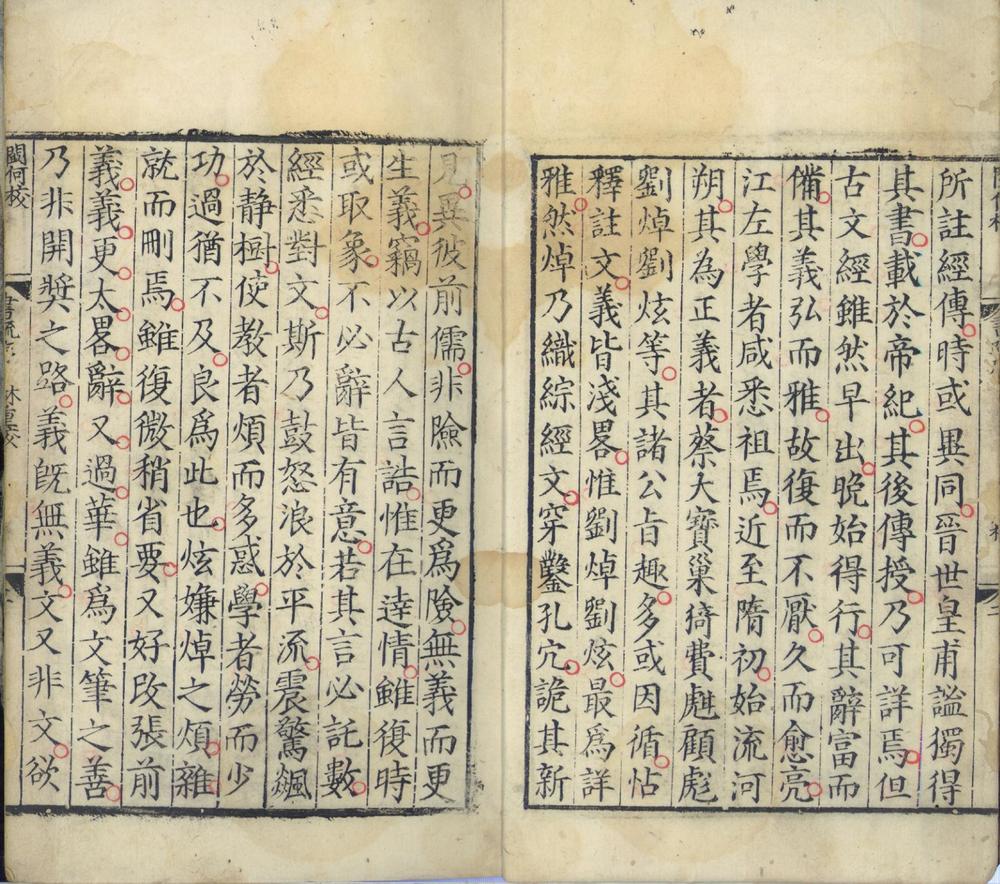 所註經傳時或異同晉世皇甫謐獨得
其書載於帝紀其後傳授乃可詳焉但
古文經雖然早出晚始得行其辭富而
備其義弘而雅故復而不厭久而愈亮
江左學者咸悉祖焉近至隋初始流河
朔其為正義者蔡大寶巢猗費甝顧彪
劉焯劉炫等其諸公旨趣多或因循帖
釋註文義皆淺畧惟劉焯劉炫最為詳
雅然焯乃織綜經文穿鑿孔穴詭其新
見異彼前儒非險而更爲險無義而更
生義竊以古人言誥惟在達情雖復時
或取象不必辭皆有意若其言必託數
經悉對文斯乃鼓怒浪於平流震驚飆
於静樹使教者煩而多惑學者勞而少
功過猶不及良爲此也炫嫌焯之煩雜
就而刪焉雖復微稍省要又好改張前
義義更太畧辭又過華雖爲文筆之善
乃非開奬之路義旣無義文又非文欲
閩何校